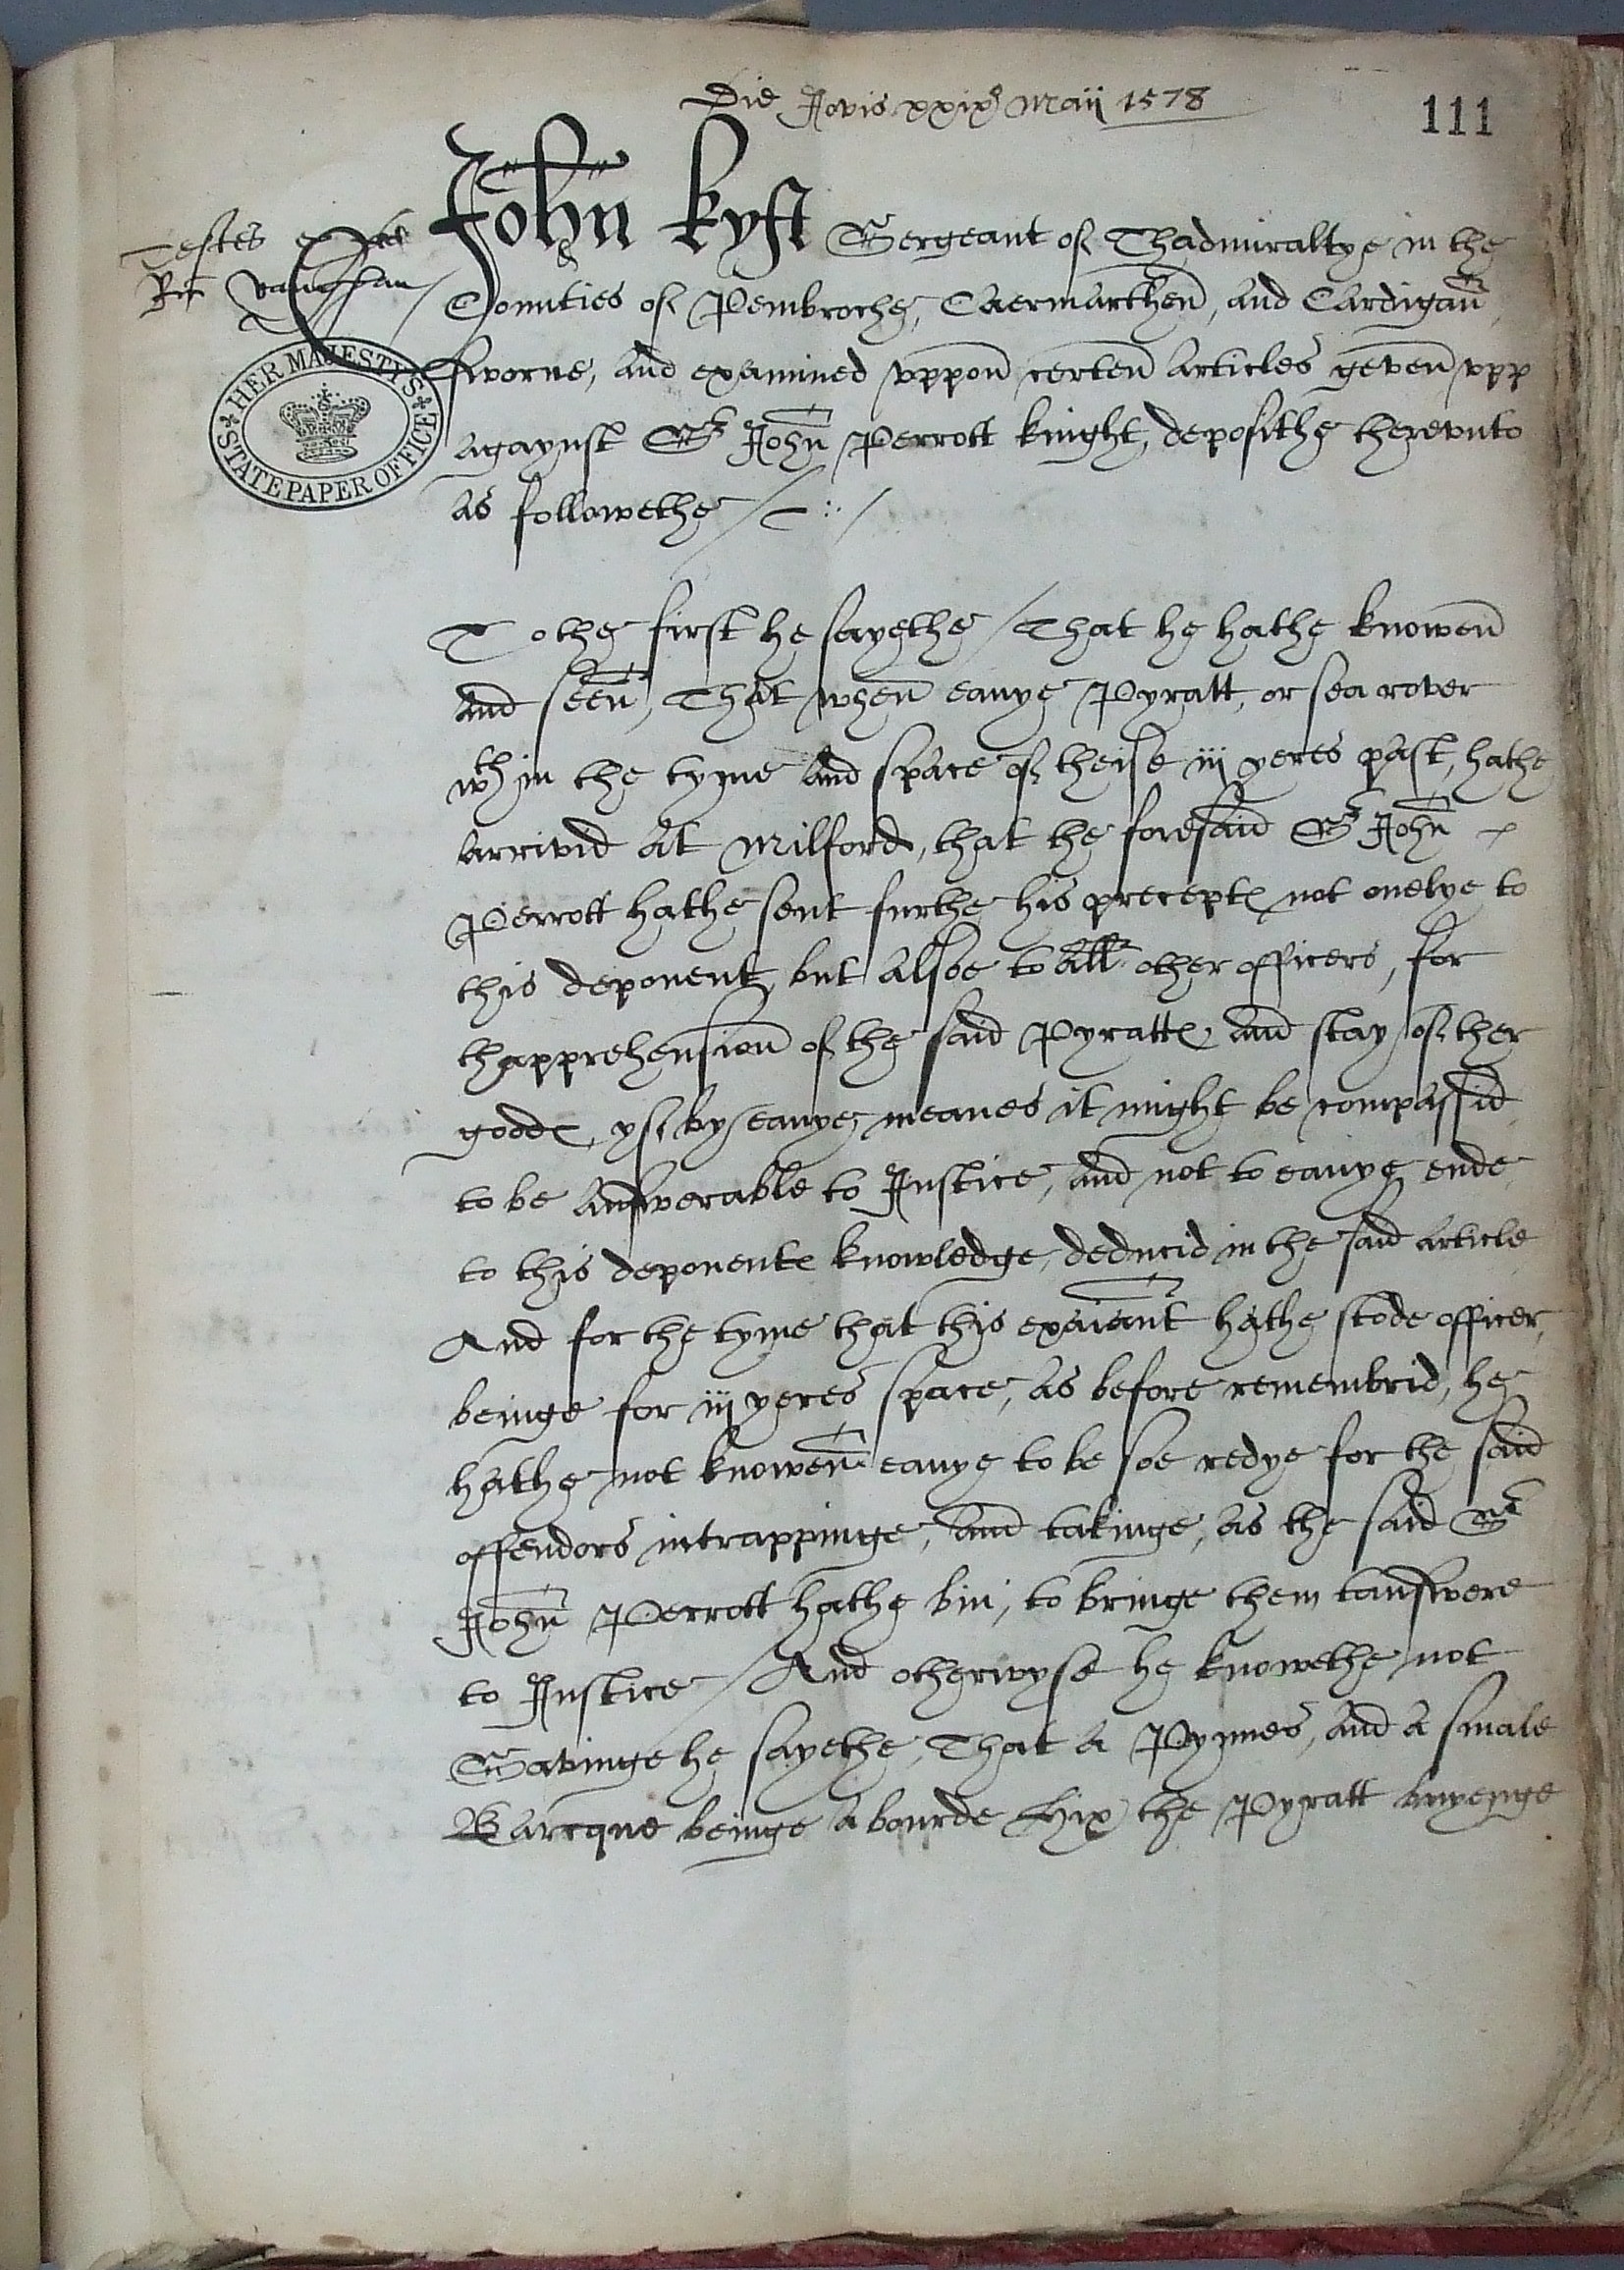 Die Jovis xxix° Maii 1578
111
Testes ex parte
Ric Vaughan
John Kyft Sergeant of Thadmiraltye in the
Counties of Pembroche, Caermarthen, and Cardigan,
sworne, and examined vppon certen articles geven vpp
agaynst Sr John Perrott knight, deposithe therevnto
as followethe
HER MAJESTY'S STATE PAPER OFFICE
To the first he sayethe / That he hathe knowen
and seen, That when eanye Pyratt, or sea rover
wthin the tyme and space of theise iij yeres past, hathe
arrivid at Milford, that the foresaid Sr John
Perrott hathe sent furthe his precepts not onelye to
this deponent, but alsoe to all other officers, for
thapprehension of the said Pyratts and stay of ther
godds, yf by eanye meanes it might be compassid
to be answerable to Justice, and not to eanye ende
to this deponents knowledge, deducid in the said article
And for the tyme that this exaiant hathe stode officer,
beinge for iij yeres space, as before remembrid, he
hathe not knowen eanye to be soe redye for the said
offendors intrappinge, and takinge, as the said Sr
John Perrott hathe bin, to bringe them tanswere
to Justice / And otherwyse he knowethe not
Savinge he sayethe, That a Pynnes, and a smale
Barcque beinge abourde Hix the Pyratt awyenge